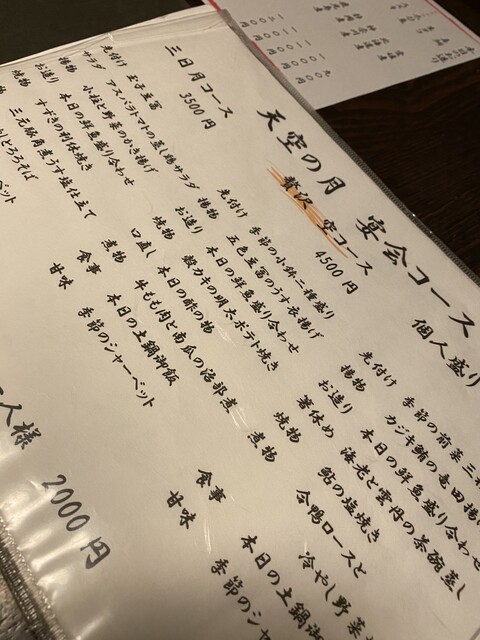 天空の月 宴会コース
個人盛り
三日月コース
3500円
先付け 玉子豆富
サラダ アスパラトマトの蒸し鶏サラダ
揚物 小柱と野菜のかき揚げ
お造り 本日の鮮魚盛り合わせ
焼物 すずきの利休焼き
三元豚角煮うす塩仕立て
とろろそば
ベット
贅沢 空コース
4500円
先付け 季節の小鉢二種盛り
揚物 五色豆富のうす衣揚げ
お造り 本日の鮮魚盛り合わせ
焼物 殻カキの明太ポテト焼き
口直し 本日の酢の物
煮物 牛もも肉と南瓜の治部煮
食事 本日の土鍋御飯
甘味 季節のシャーベット
先付け 季節の前菜三
揚物 カジキ鮪の竜田揚げ
お造り 本日の鮮魚盛り合わせ
箸休め 海老と雲丹の茶碗蒸し
焼物 鮎の塩焼き
煮物 合鴨ロースと
冷やし野菜
食事 本日の土鍋御
甘味 季節のシャ
人様 2000円